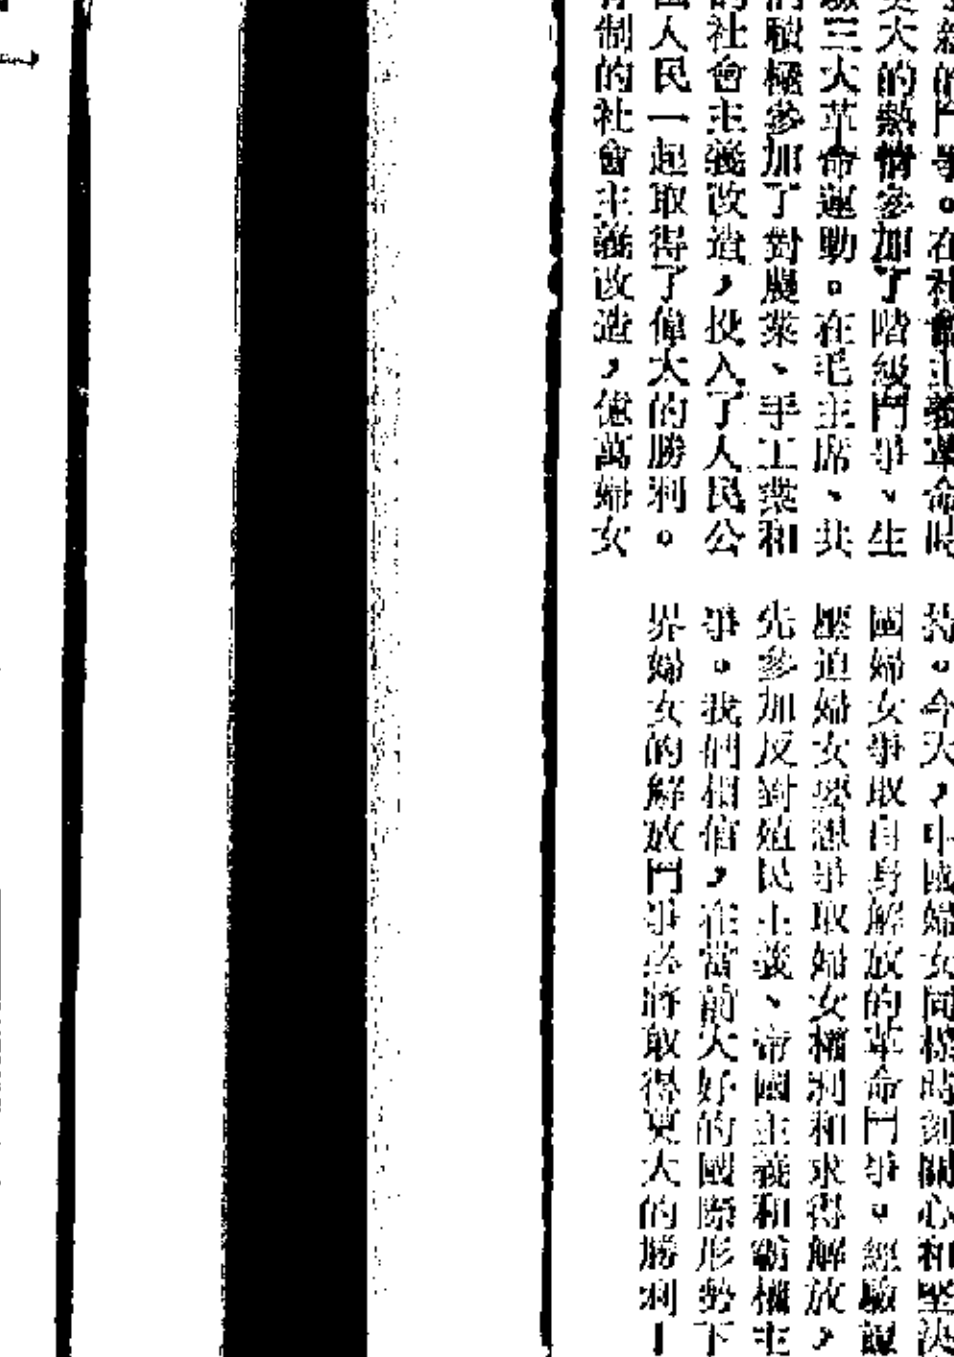 新的鬥爭。在社會主義革命時
更大的熱情參加了階級鬥爭、生
驗三大革命運動。在毛主席、共
們積極參加了對農業、手工業和
的社會主義改造，投入了人民公
國人民一起取得了偉大的勝利。
有制的社會主義改造，億萬婦女
持。今天，中國婦女同樣時刻關心和堅決
國婦女爭取自身解放的革命鬥爭。經驗證
壓迫婦女要想爭取婦女權利和求得解放，
先參加反對殖民主義、帝國主義和霸權主
爭。我們相信，在當前大好的國際形勢下
界婦女的解放鬥爭必將取得更大的勝利！